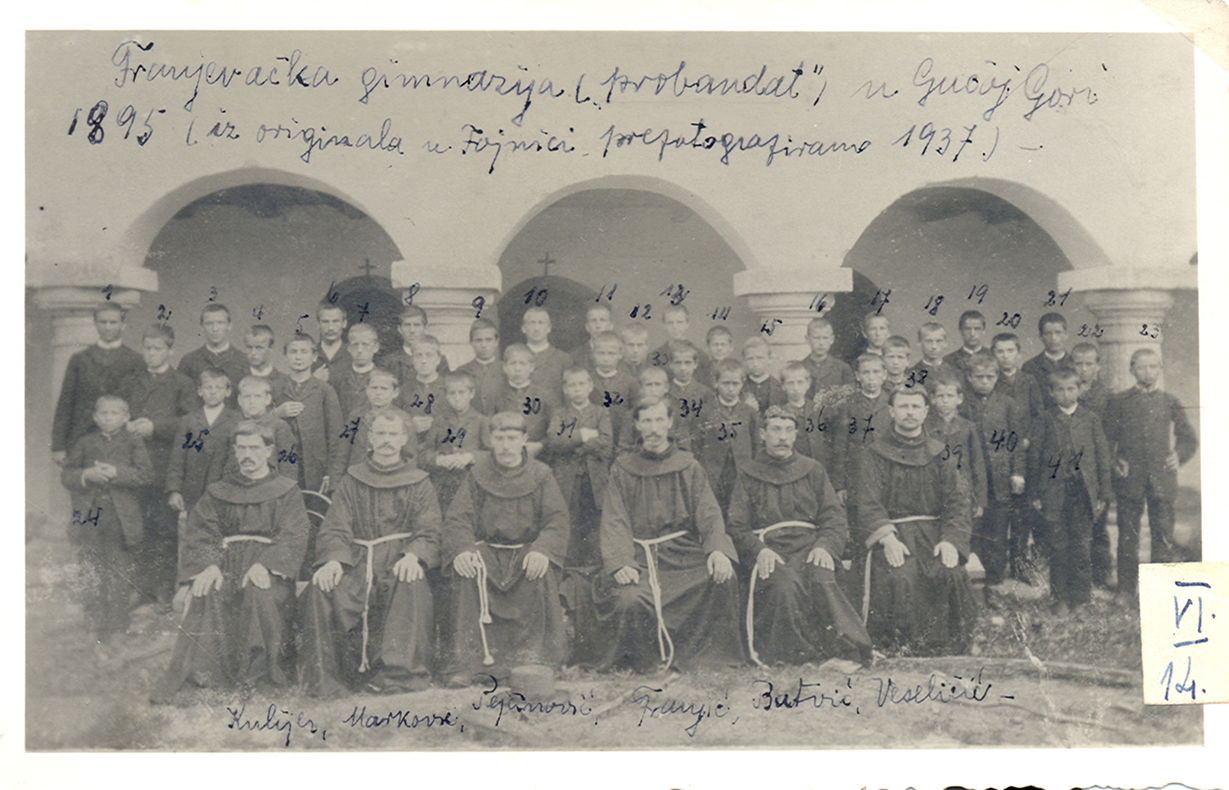 Franjevačka gimnazija („probandat") u Gučoj Gori
1895 (iz originala u Fojnici prefotografirano 1937.) –
1 2 3 4 5 6 7 8 9 10 11 12 13 14 15 16 17 18 19 20 21 22 23
24 25 26 27 28 29 30 31 32 33 34 35 36 37 38 39 40 41
VI.
14.
Kulijer, Marković, Pejčinović, Franjić, Butvić, Veseličić –